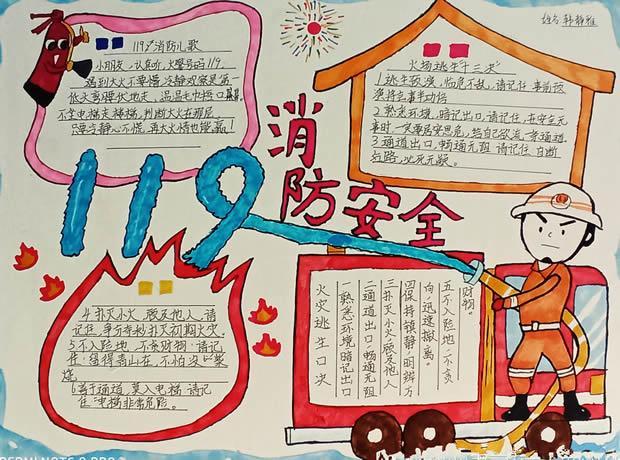 姓名韩静雅
119消防儿歌
小朋友,认真听,火警号码119.
遇到大火不要慌,冷静观察是第一
低下身躯伏地走,湿湿毛巾捂口鼻
不坐电梯走楼梯,判断大火在哪层
只要冷静心不慌,再大火情也能赢!
火场逃生十三决
1逃生预演,临危不乱,请记住:事前预
演将会事半功倍
2.熟悉环境,暗记出口,请记住:在安全无
事时一定要居安思危,给自己留一条通道.
3.通道出口,畅通无阻 请记住:自断
后路,必死无疑。
消防安全
119
4.扑灭小火,惠及他人,请
记住,争分夺秒扑灭初期火灾.
5.不入险地,不贪财物:请记
住:留得青山在,不怕没柴
烧
6善于通道,莫入电梯 请记
住:电梯非常危险。
火灾逃生口决
一熟悉环境暗记出口
二通道出口,畅通无阻
三扑灭小火,惠及他人
四保持镇静,明辨方
向,迅速撤离。
五不入险地,不贪
财物。